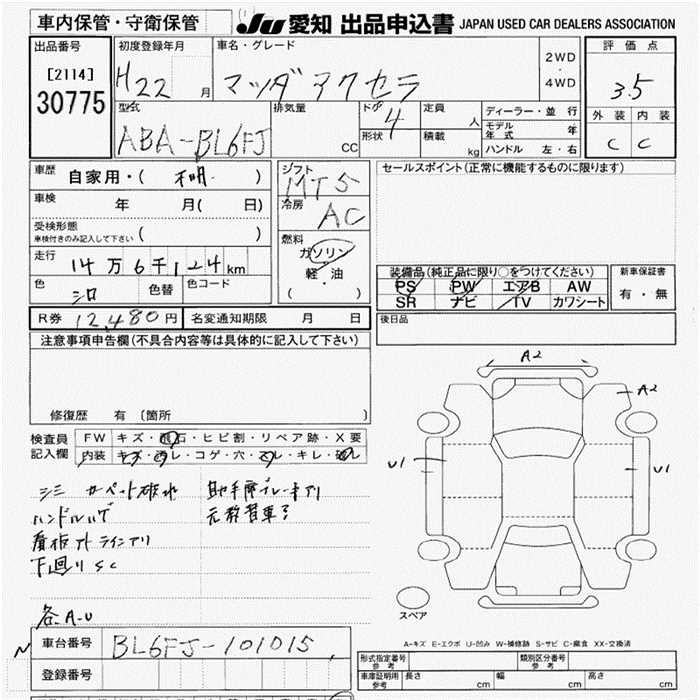 車内保管・守衛保管 JU 愛知 出品申込書 JAPAN USED CAR DEALERS ASSOCIATION
出品番号
[2114]
30775
初度登録年月
H22 月
車名・グレード
マツダ アクセラ
2WD
・
4WD
評価点
3.5
外装 内装
C C
型式
ABA-BL6FJ
排気量
CC
ドア
4
形状
定員
人
積載
kg
ディーラー・並行
モデル年式 年
ハンドル 左・右
車歴 自家用・( 不明 )
車検 年 月( 日)
受検形態
車検付きのみ記入して下さい ( )
走行 14万6千124km
色 シロ 色替 色コード
シフト
MT5
冷房
AC
燃料
ガソリン
軽・油
( )
セールスポイント(正常に機能するものに限ります)
装備品(純正品に限り○をつけてください)
PS PW エアB AW
SR ナビ TV カワシート
新車保証書
有・無
R券 12,480円 名変通知期限 月 日
後日品
注意事項申告欄(不具合内容等は具体的に記入して下さい)
修復歴 有 〔箇所 〕
検査員記入欄
FW キズ・飛石・ヒビ割・リペア跡・X要
内装 キズ・汚レ・コゲ・穴・スレ・キレ・破レ
シミ カーペット破れ
助手席ブレーキアリ
ハンドルハゲ
元教習車
看板アトラインアリ
下廻りSC
各A-U
A2
A2
U1
U1
スペア
A-キズ E-エクボ U-凹み W-補修跡 S-サビ C-腐食 XX-交換済
車台番号 BL6FJ-101015
登録番号
形式指定番号 参考
類別区分番号 参考
車庫証明用 参考 長さ cm 幅 cm 高さ cm